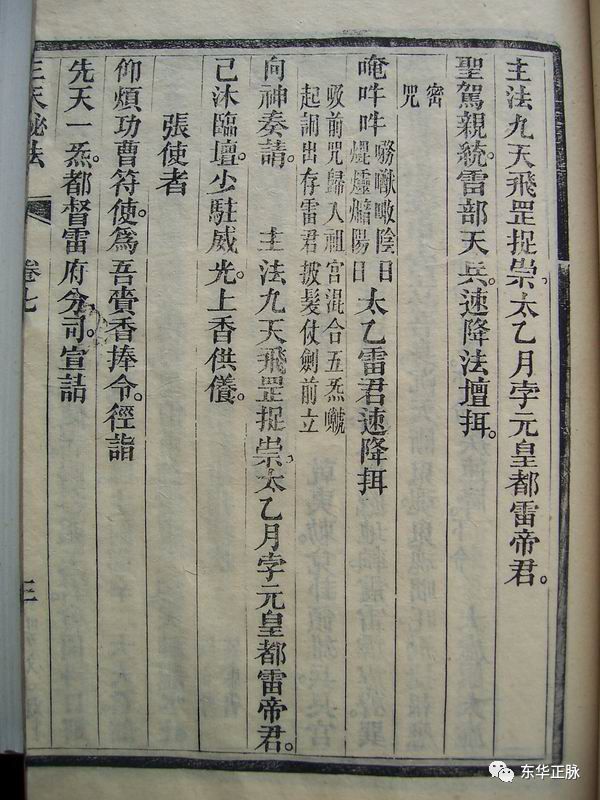 主法九天飛罡捉祟太乙月孛元皇都雷帝君。
聖駕親統雷部天兵。速降法壇揖。
密
咒
唵吽吽 陰日 陽日 太乙雷君速降揖
吸前咒歸入祖宮混合五炁
起詞出存雷君披髮仗劍前立
向神奏請。 主法九天飛罡捉祟太乙月孛元皇都雷帝君。
已沐臨壇。少駐威光。上香供儀。
張使者
仰煩功曹符使。為吾賫香捧令。徑詣
先天一炁都督雷府分司。宣詰
三天秘法 卷七 三
东华正脉